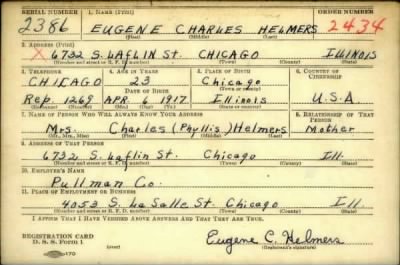 SERIAL NUMBER 1. NAME (Print) ORDER NUMBER
2386 EUGENE CHARLES HELMERS 2434
(First) (Middle) (Last)
2. ADDRESS (Print)
X 6732 S. LAFLIN St. CHICAGO ILLINOIS
(Number and street or R. F. D. number) (Town) (County) (State)
3. TELEPHONE 4. AGE IN YEARS 5. PLACE OF BIRTH 6. COUNTRY OF CITIZENSHIP
CHICAGO 23 Chicago
DATE OF BIRTH (Town or county)
Rep. 1269 APR. 6 1917 Illinois U.S.A
(Exchange) (Number) (Mo.) (Day) (Yr.) (State or country)
7. NAME OF PERSON WHO WILL ALWAYS KNOW YOUR ADDRESS 8. RELATIONSHIP OF THAT PERSON
Mrs. Charles (Phyllis) Helmers Mother
(Mr., Mrs., Miss) (First) (Middle) (Last)
9. ADDRESS OF THAT PERSON
6732 S. Laflin St. Chicago Ill.
(Number and street or R. F. D. number) (Town) (County) (State)
10. EMPLOYER'S NAME
Pullman Co.
11. PLACE OF EMPLOYMENT OR BUSINESS
4053 S. La Salle St. Chicago Ill
(Number and street or R. F. D. number) (Town) (County) (State)
I AFFIRM THAT I HAVE VERIFIED ABOVE ANSWERS AND THAT THEY ARE TRUE.
REGISTRATION CARD
D. S. S. Form 1 (over) Eugene C. Helmers
(Registrant's signature)